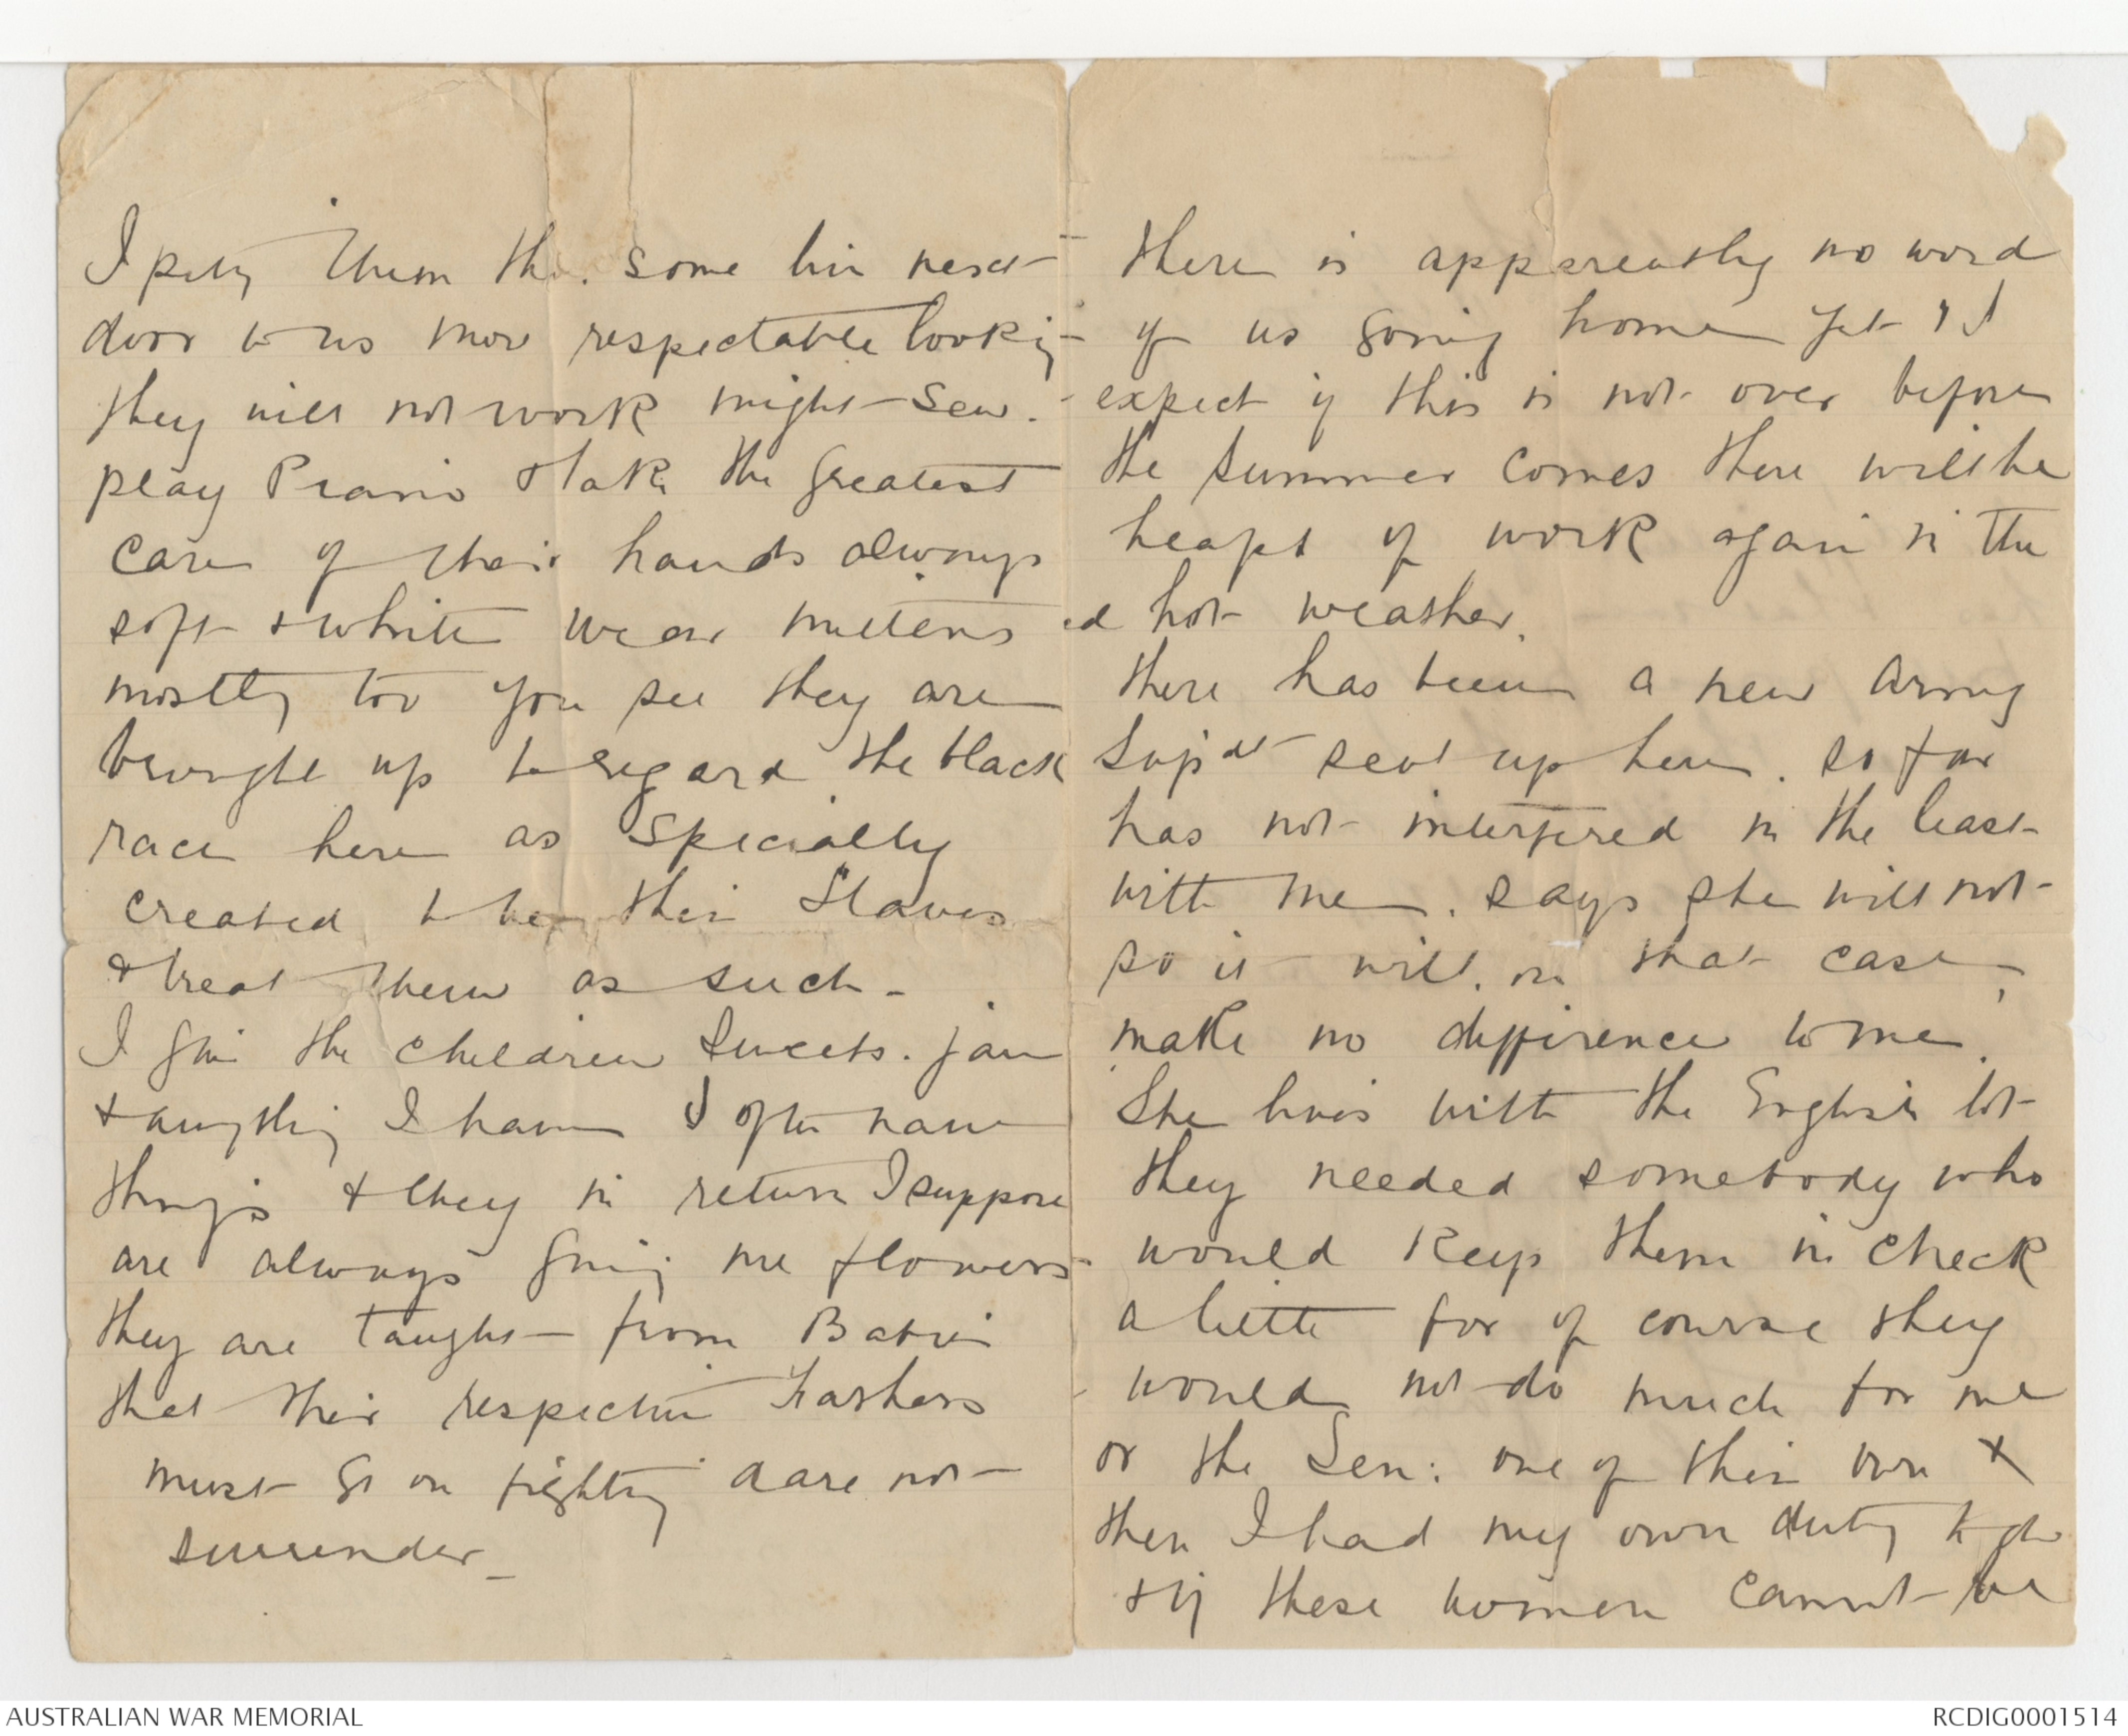 I pity them tho. some live next
door to us more respectable looking
they will not work might sew.
play Piano & take the greatest
care of their hands always
soft & white wear mittens
mostly too you see they are
brought up to regard the black
race here as specially
created to be their Slaves
& treat them as such -
I give the children Sweets. jam
& anything I have I often have
things & they in return I suppose
are always giving me flowers
they are taught from Babies
that their respective Fathers
must go on fighting dare not
surrender -
there is appareatly no word
of us going home yet & I
expect if this is not over before
the Summer comes there will be
heaps of work again in the
hot weather.
there has been a new Army
Sup'dt sent up here. so far
has not interfered in the least
with me. says she will not
so it will. in that case,
make no difference to me.
She lives with the English lot
they needed somebody who
would keep them in check
a little for of course they
would not do much for me
or the Sen: one of their own &
then I had my own duty to do
& if these women cannot be
AUSTRALIAN WAR MEMORIAL
RCDIG0001514